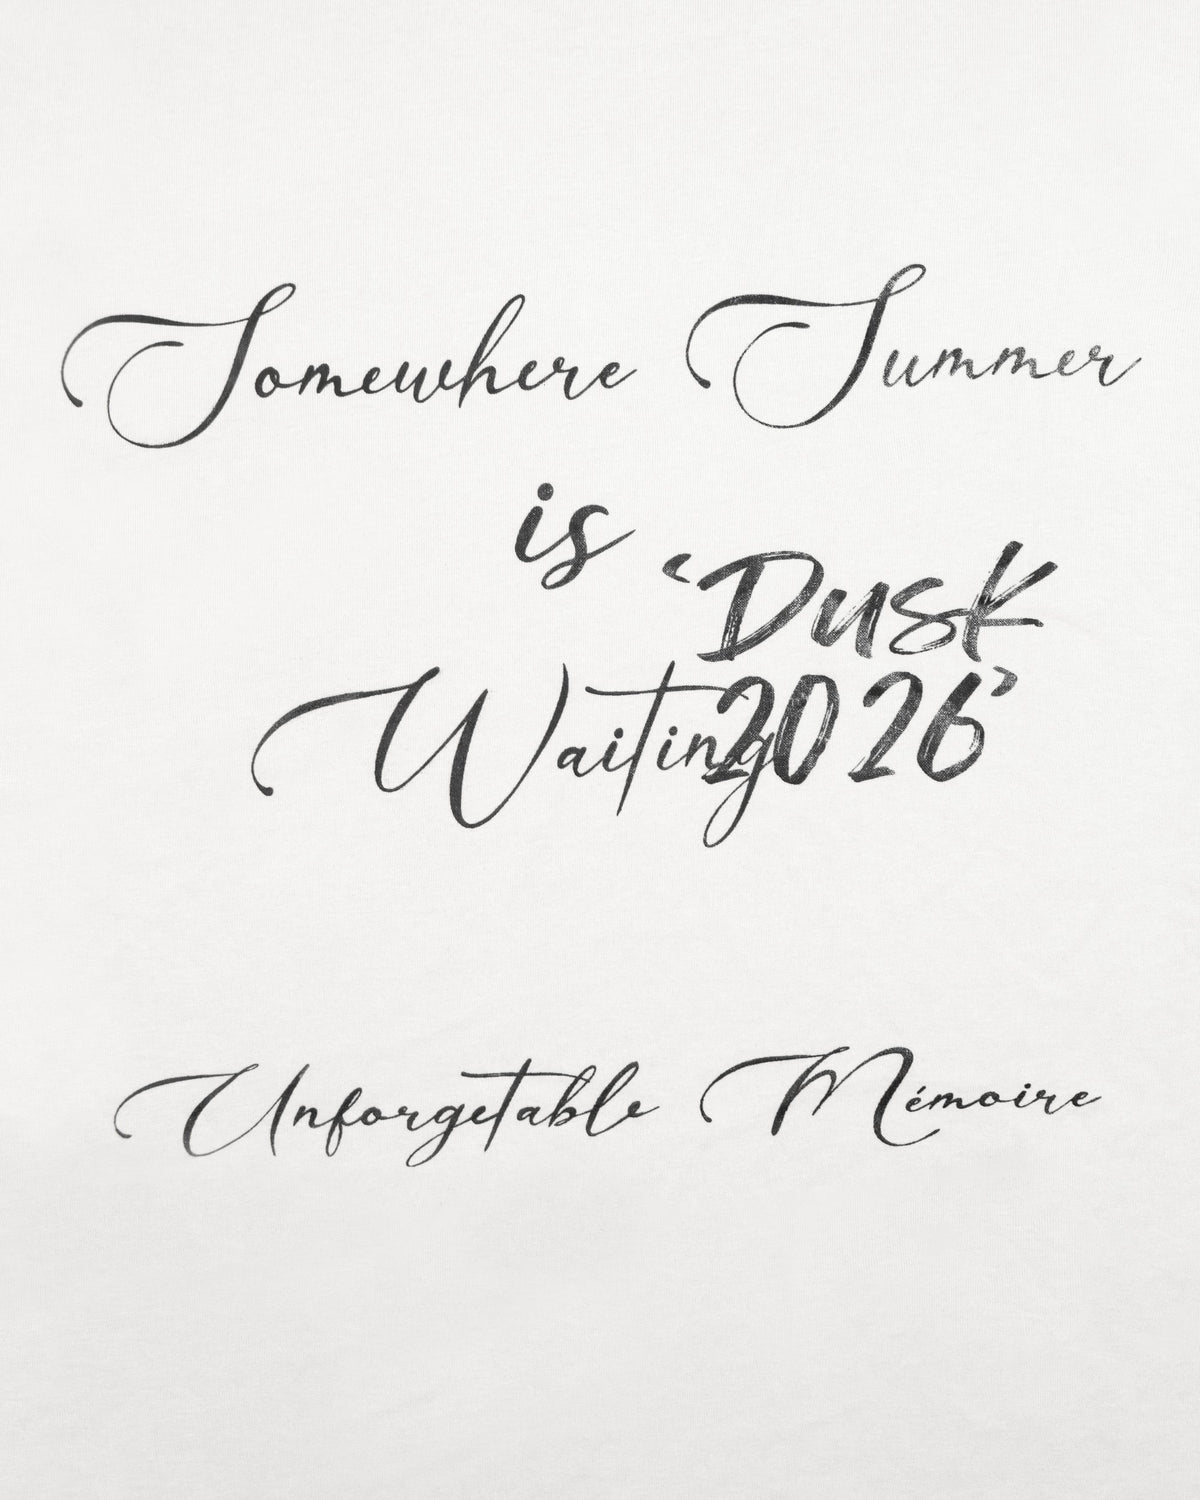 Somewhere Summer
is
‘Dusk
Waiting
2026’
Unforgetable Mémoire